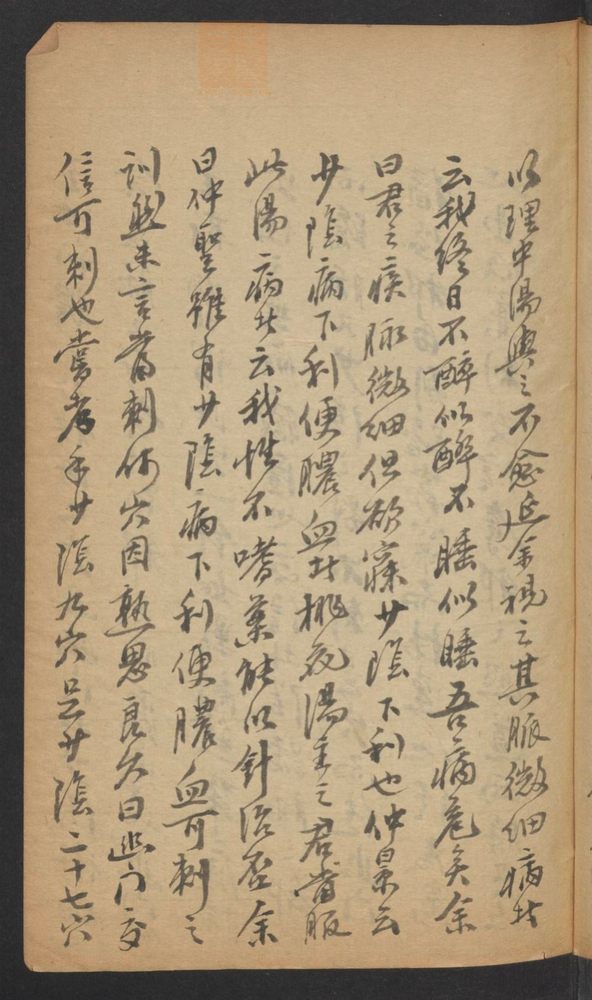 以理中湯與之不愈延余視之其脈微细病者
云我終日不醉似醉不睡似睡吾病危矣余
曰君之疾脉微细但欲寐少陰下利也仲景云
少陰病下利便膿血者桃花湯主之君當服
此湯病者云我性不嗜藥能以針治否余
曰仲聖雖有少陰病下利便膿血可刺之
訓然未言當刺何穴因熟思良久曰幽门交
信可刺也嘗考手少陰九穴足少陰二十七穴